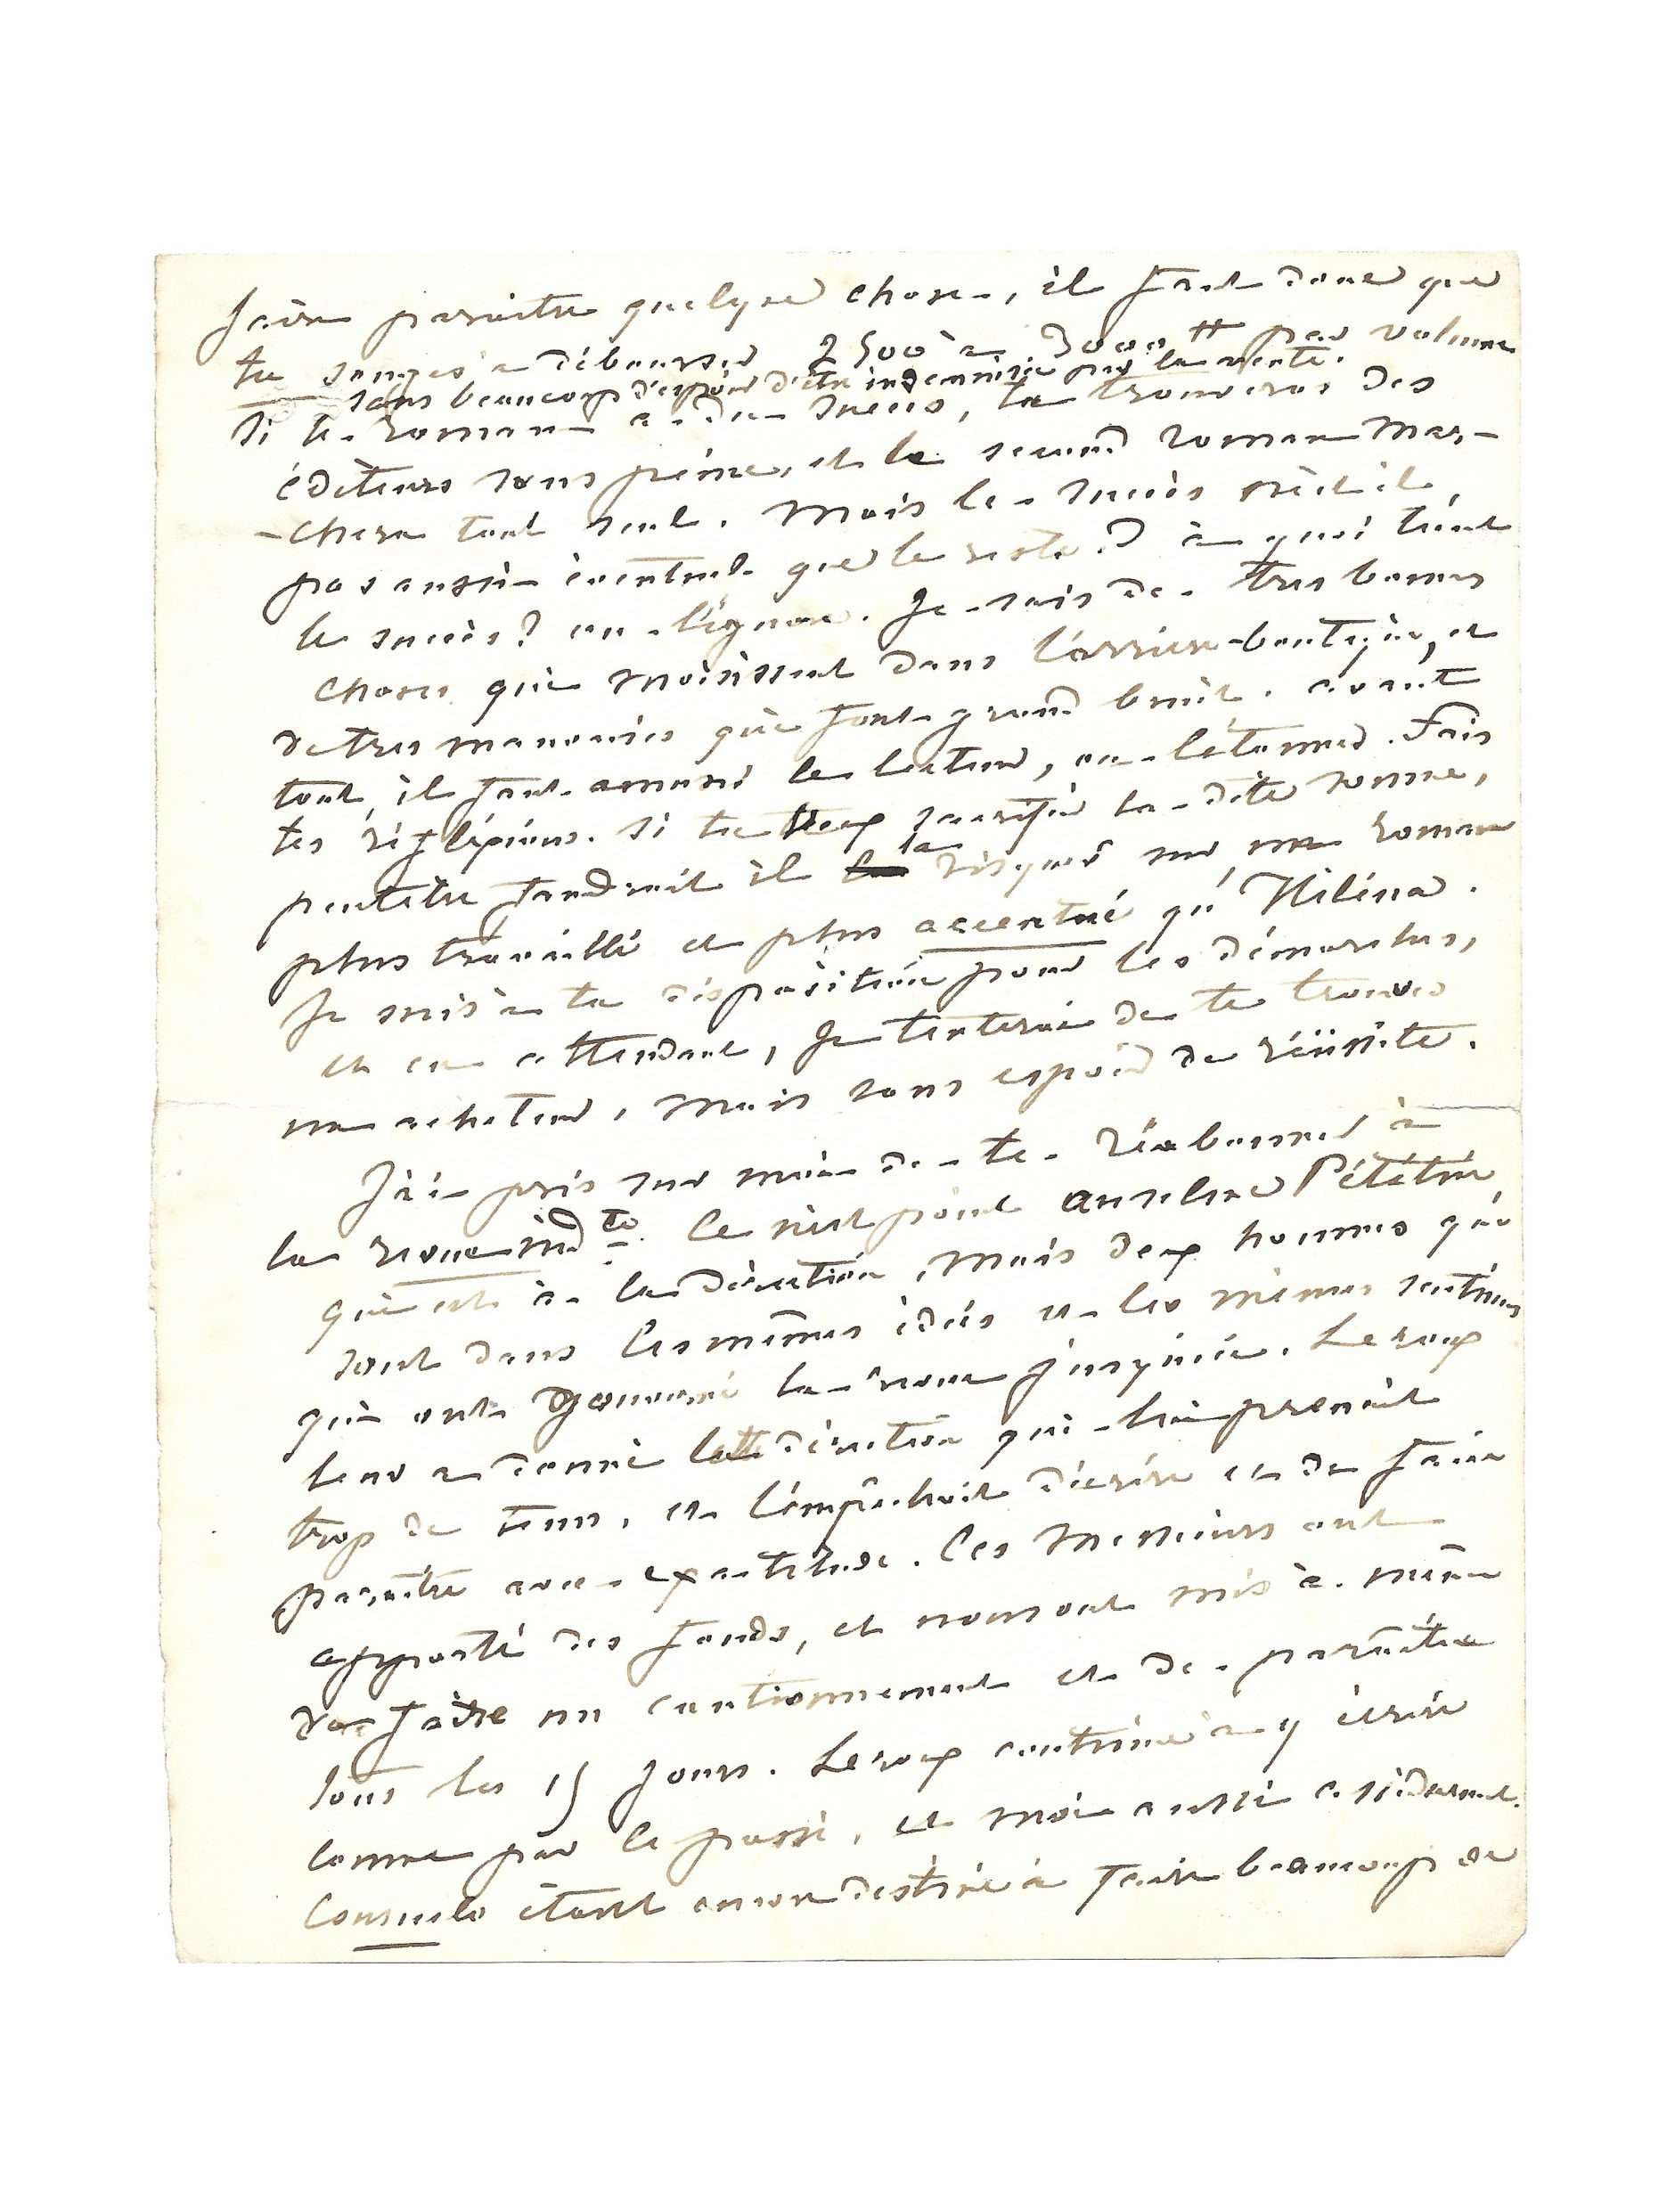 faire paraitre quelque chose, il faut donc que
tu songes à débourser 2500 à 3000 ₶ par volume
sans beaucoup d'espoir d'être indemnisé par la vente.
Si le roman a du succès, tu trouveras des
éditeurs sans peine, et le second roman mar-
-chera tout seul. Mais le succès n'est il
pas aussi éventuel que le reste ? à quoi tient
le succès? on l'ignore. Je sais de très bonnes
choses qui moisissent dans l'arrière-boutique, et
de très mauvaises qui font grand bruit. avant
tout, il faut amuser le lecteur, ou l'étonner. Fais
tes réflexions. Si tu veux sacrifier la dite somme,
peutêtre faudrait il la risquer sur un roman
plus travaillé et plus accentué qu'Hélèna.
Je suis à ta disposition pour les démarches,
et en attendant, je tenterai de te trouver
un acheteur, mais sans espoir de réussite.
J'ai pris sur moi de te réabonner à
la revue indte. Ce n'est point Anselme Pététin,
qui est à la direction, mais deux hommes qui
sont dans les mêmes idées et les mêmes sentimens
qui ont gouverné la revue jusqu'ici. Leroux
leur a donné la direction qui lui prenait
trop de tems, et l'empêchait d'écrire et de faire
paraître avec exactitude. Ces Messieurs ont
apporté des fonds, et nous ont mis à même
de faire un cautionnement et de paraître
tous les 15 jours. Leroux continue à y écrire
comme par le passé, et moi aussi assidument.
Consuelo étant encore destinée à faire beaucoup de